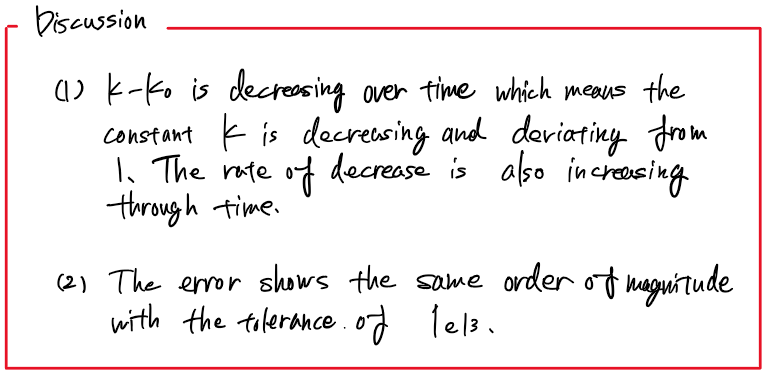 Discussion
(1) k-k₀ is decreasing over time which means the
constant k is decreasing and deviating from
1. The rate of decrease is also increasing
through time.
(2) The error shows the same order of magnitude
with the tolerance of 1e13.